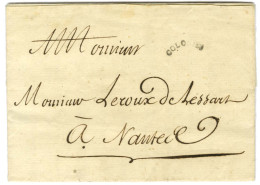 Monsieur
COLONIES
Monsieur Leroux de Lessart
À Nantes